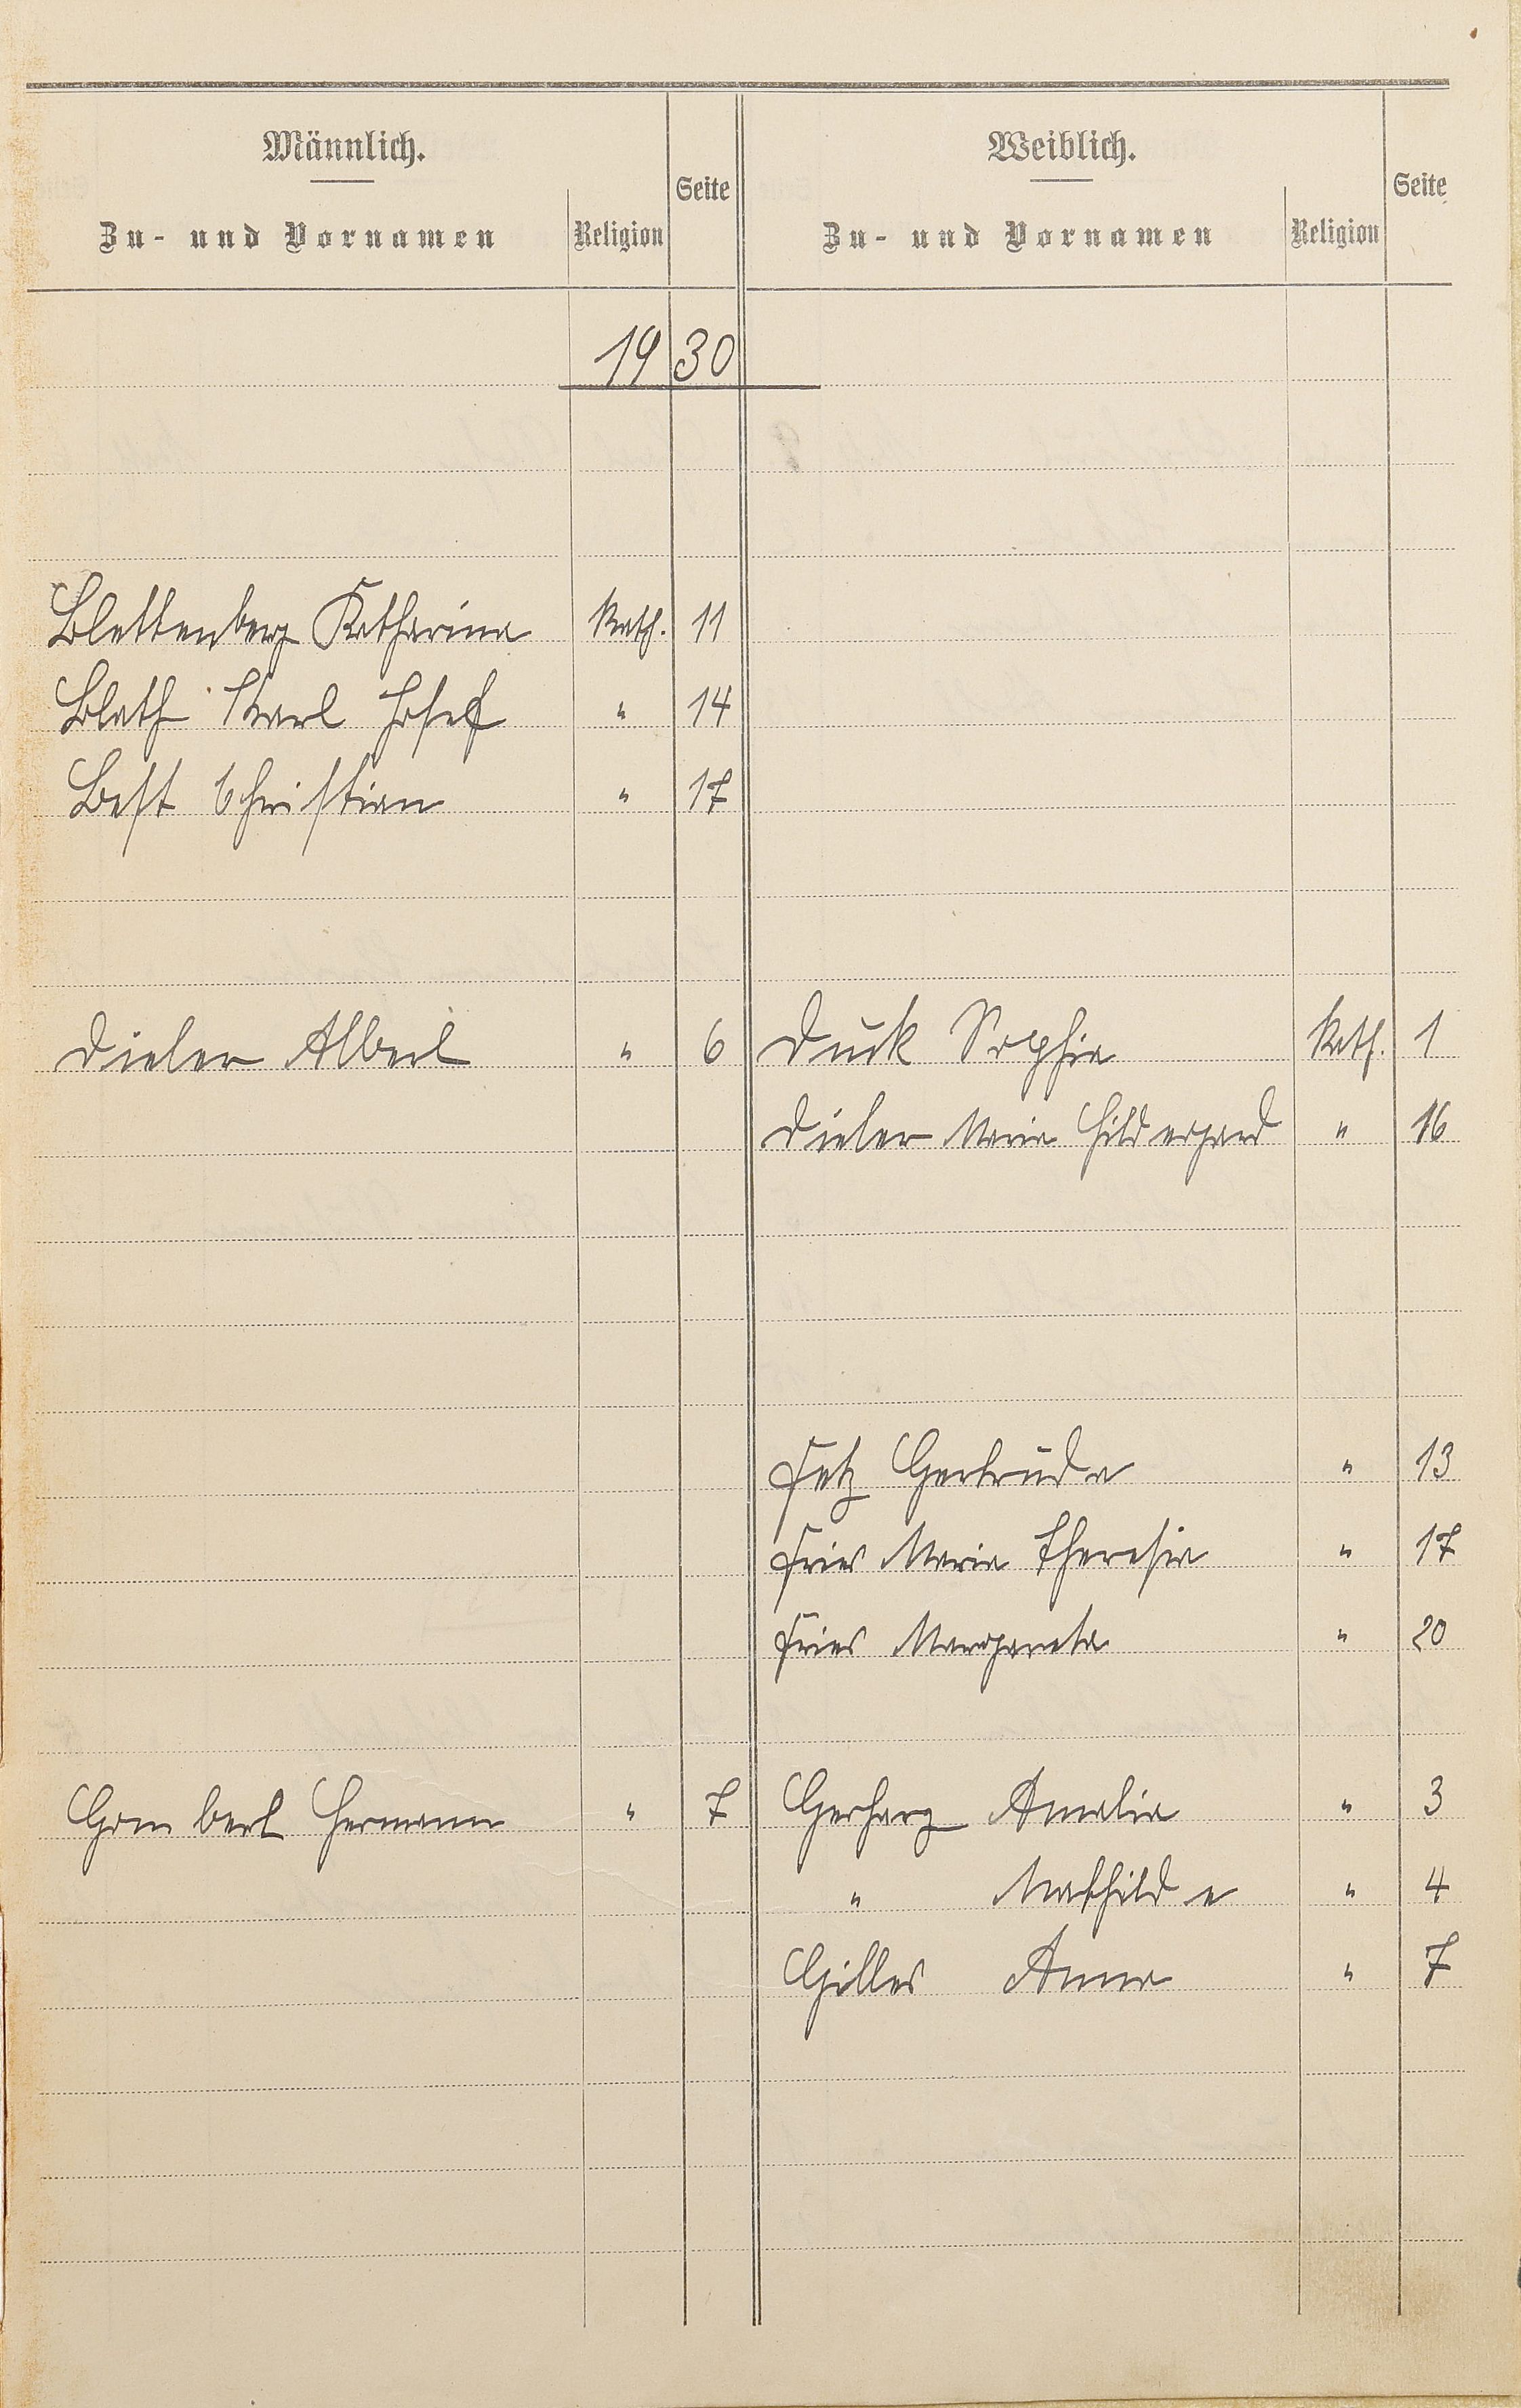 Männlich.
Zu- und Vornamen Religion Seite
Weiblich.
Zu- und Vornamen Religion Seite
1930
Blettenberg Katharina Kath. 11
Blath Karl Josef " 14
Best Christian " 17
Dieler Albert " 6 Duck Sophia Kath. 1
Dieler Maria Hildegard " 16
Fetz Gertrude " 13
Fries Maria Theresia " 17
Fries Margareta " 20
Gombert Hermann " 7 Gerharz Amalia " 3
" Mathilde " 4
Gilles Anna " 7